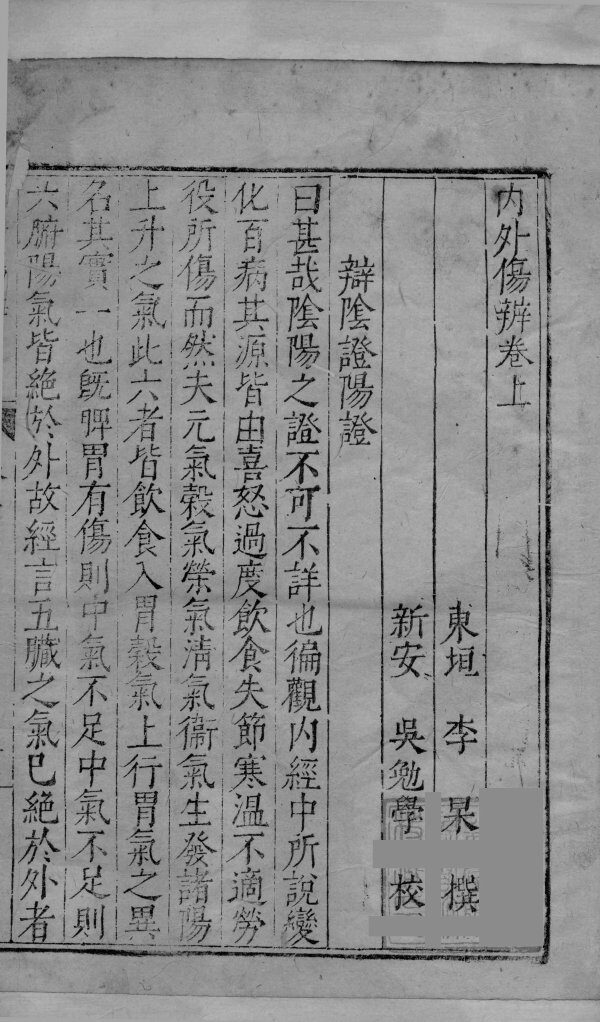 內外傷辨卷上
東垣 李 杲 撰
新安 吳勉學 校
辯陰證陽證
曰甚哉陰陽之證不可不詳也徧觀內經中所說變
化百病其源皆由喜怒過度飲食失節寒溫不適勞
役所傷而然夫元氣穀氣榮氣清氣衞氣生發諸陽
上升之氣此六者皆飲食入胃穀氣上行胃氣之異
名其實一也旣脾胃有傷則中氣不足中氣不足則
六腑陽氣皆絕於外故經言五臟之氣已絕於外者